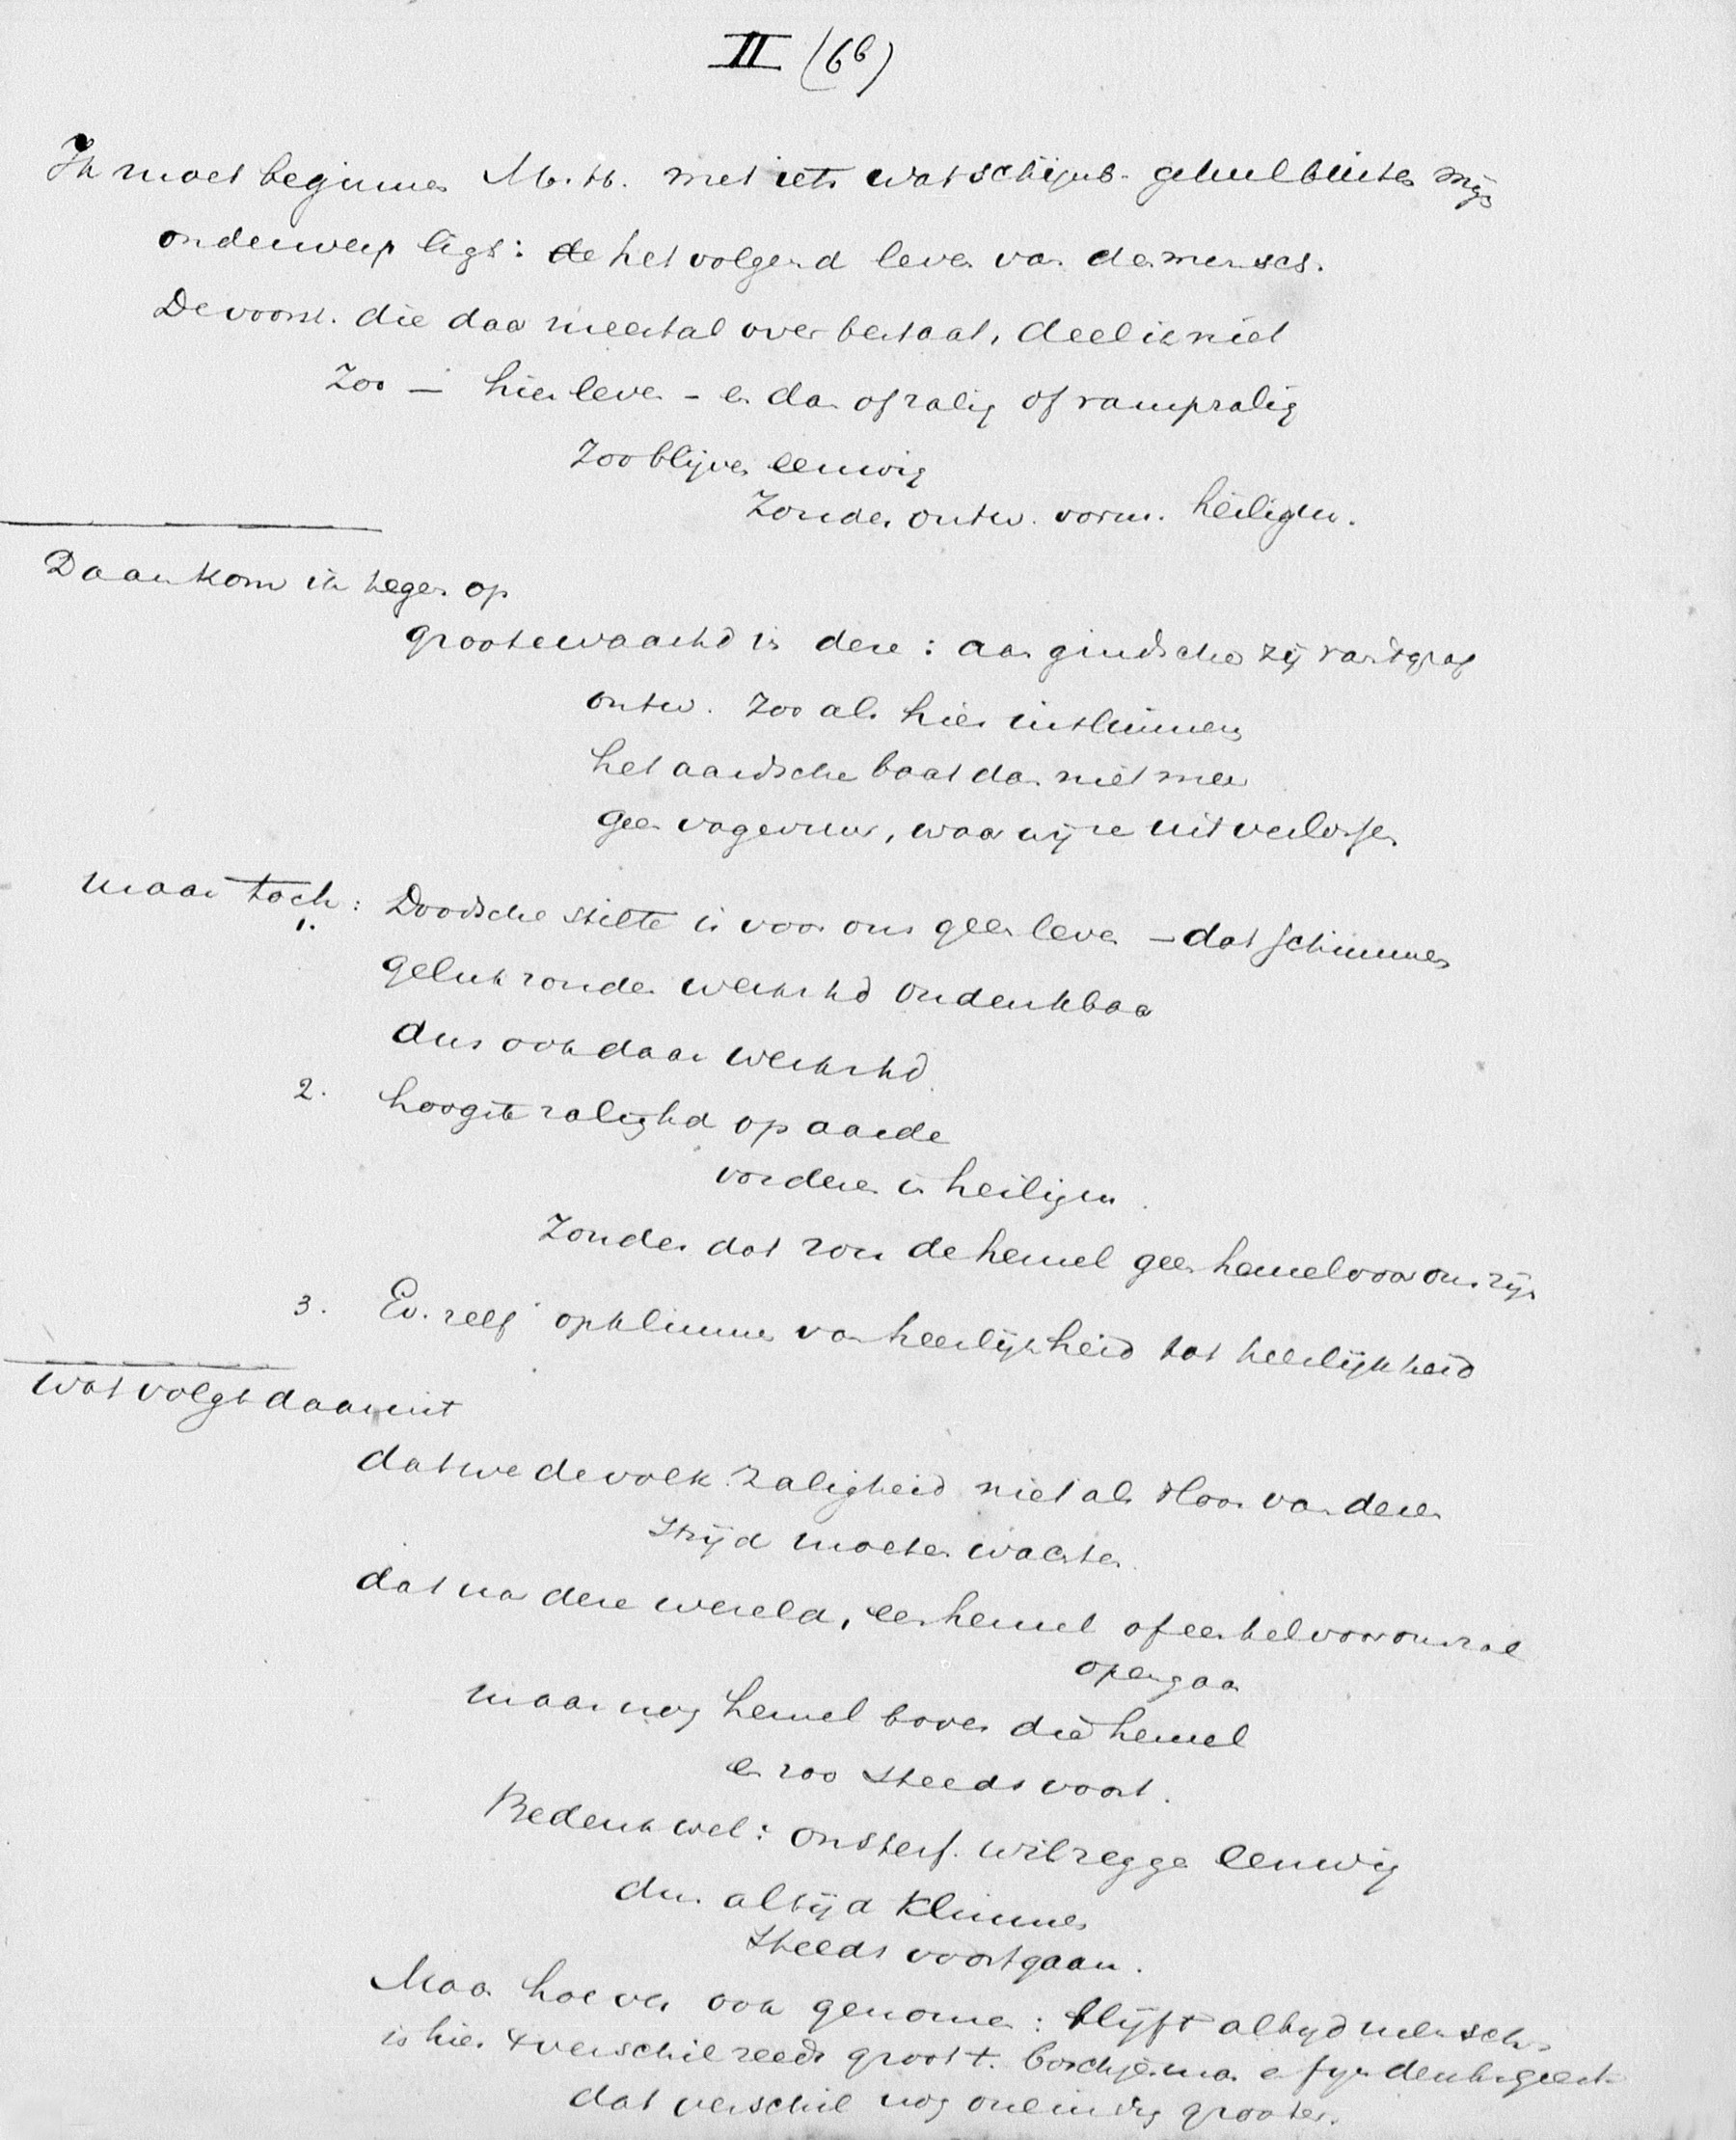 II (6b)
Ik moet beginnen M. H. met iets wat schijnb. geheel buiten mijn
onderwerp ligt: de het volgend leven van den mensch.
De voorst. die daar meestal over bestaat, deel ik niet
Zoo — hier leven – en dan of zalig of rampzalig
Zoo blijven eeuwig
Zonder ontw. vorm. heiligm.
Daar kom ik tegen op
groote waarhd is deze: aan gindsche zij van 't graf
ontw. zoo als hier intusschen
het aardsche baat dan niet meer
geen vagevuur, waar wij ze uit verlossen
maar toch:
1. Doodsche stilte is voor ons geen leven – dat schimmen
geluk zonder werkzhd ondenkbaar
dus ook daar werkzhd.
2. hoogste zalighd op aarde
vorderen in heiligm.
Zonder dat zou de hemel geen hemel voor ons zijn
3. Ev. zelf opklimmen van heerlijkheid tot heerlijkheid
Wat volgt daaruit
dat we de volk. zaligheid niet als kroon van dezen
strijd moeten wachten.
dat na deze wereld, een hemel of een hel voor ons zal
opengaan
maar nog hemel boven die hemel
en zoo steeds voort.
Bedenk wel: onsterf. wil zeggen eeuwig
dus altijd klimmen
steeds voortgaan.
Maar hoe ver ook genomen: blijft altijd mensch
is hier 't verschil reeds groot t. en fijn denk. geest
dat verschil nog oneindig grooter.